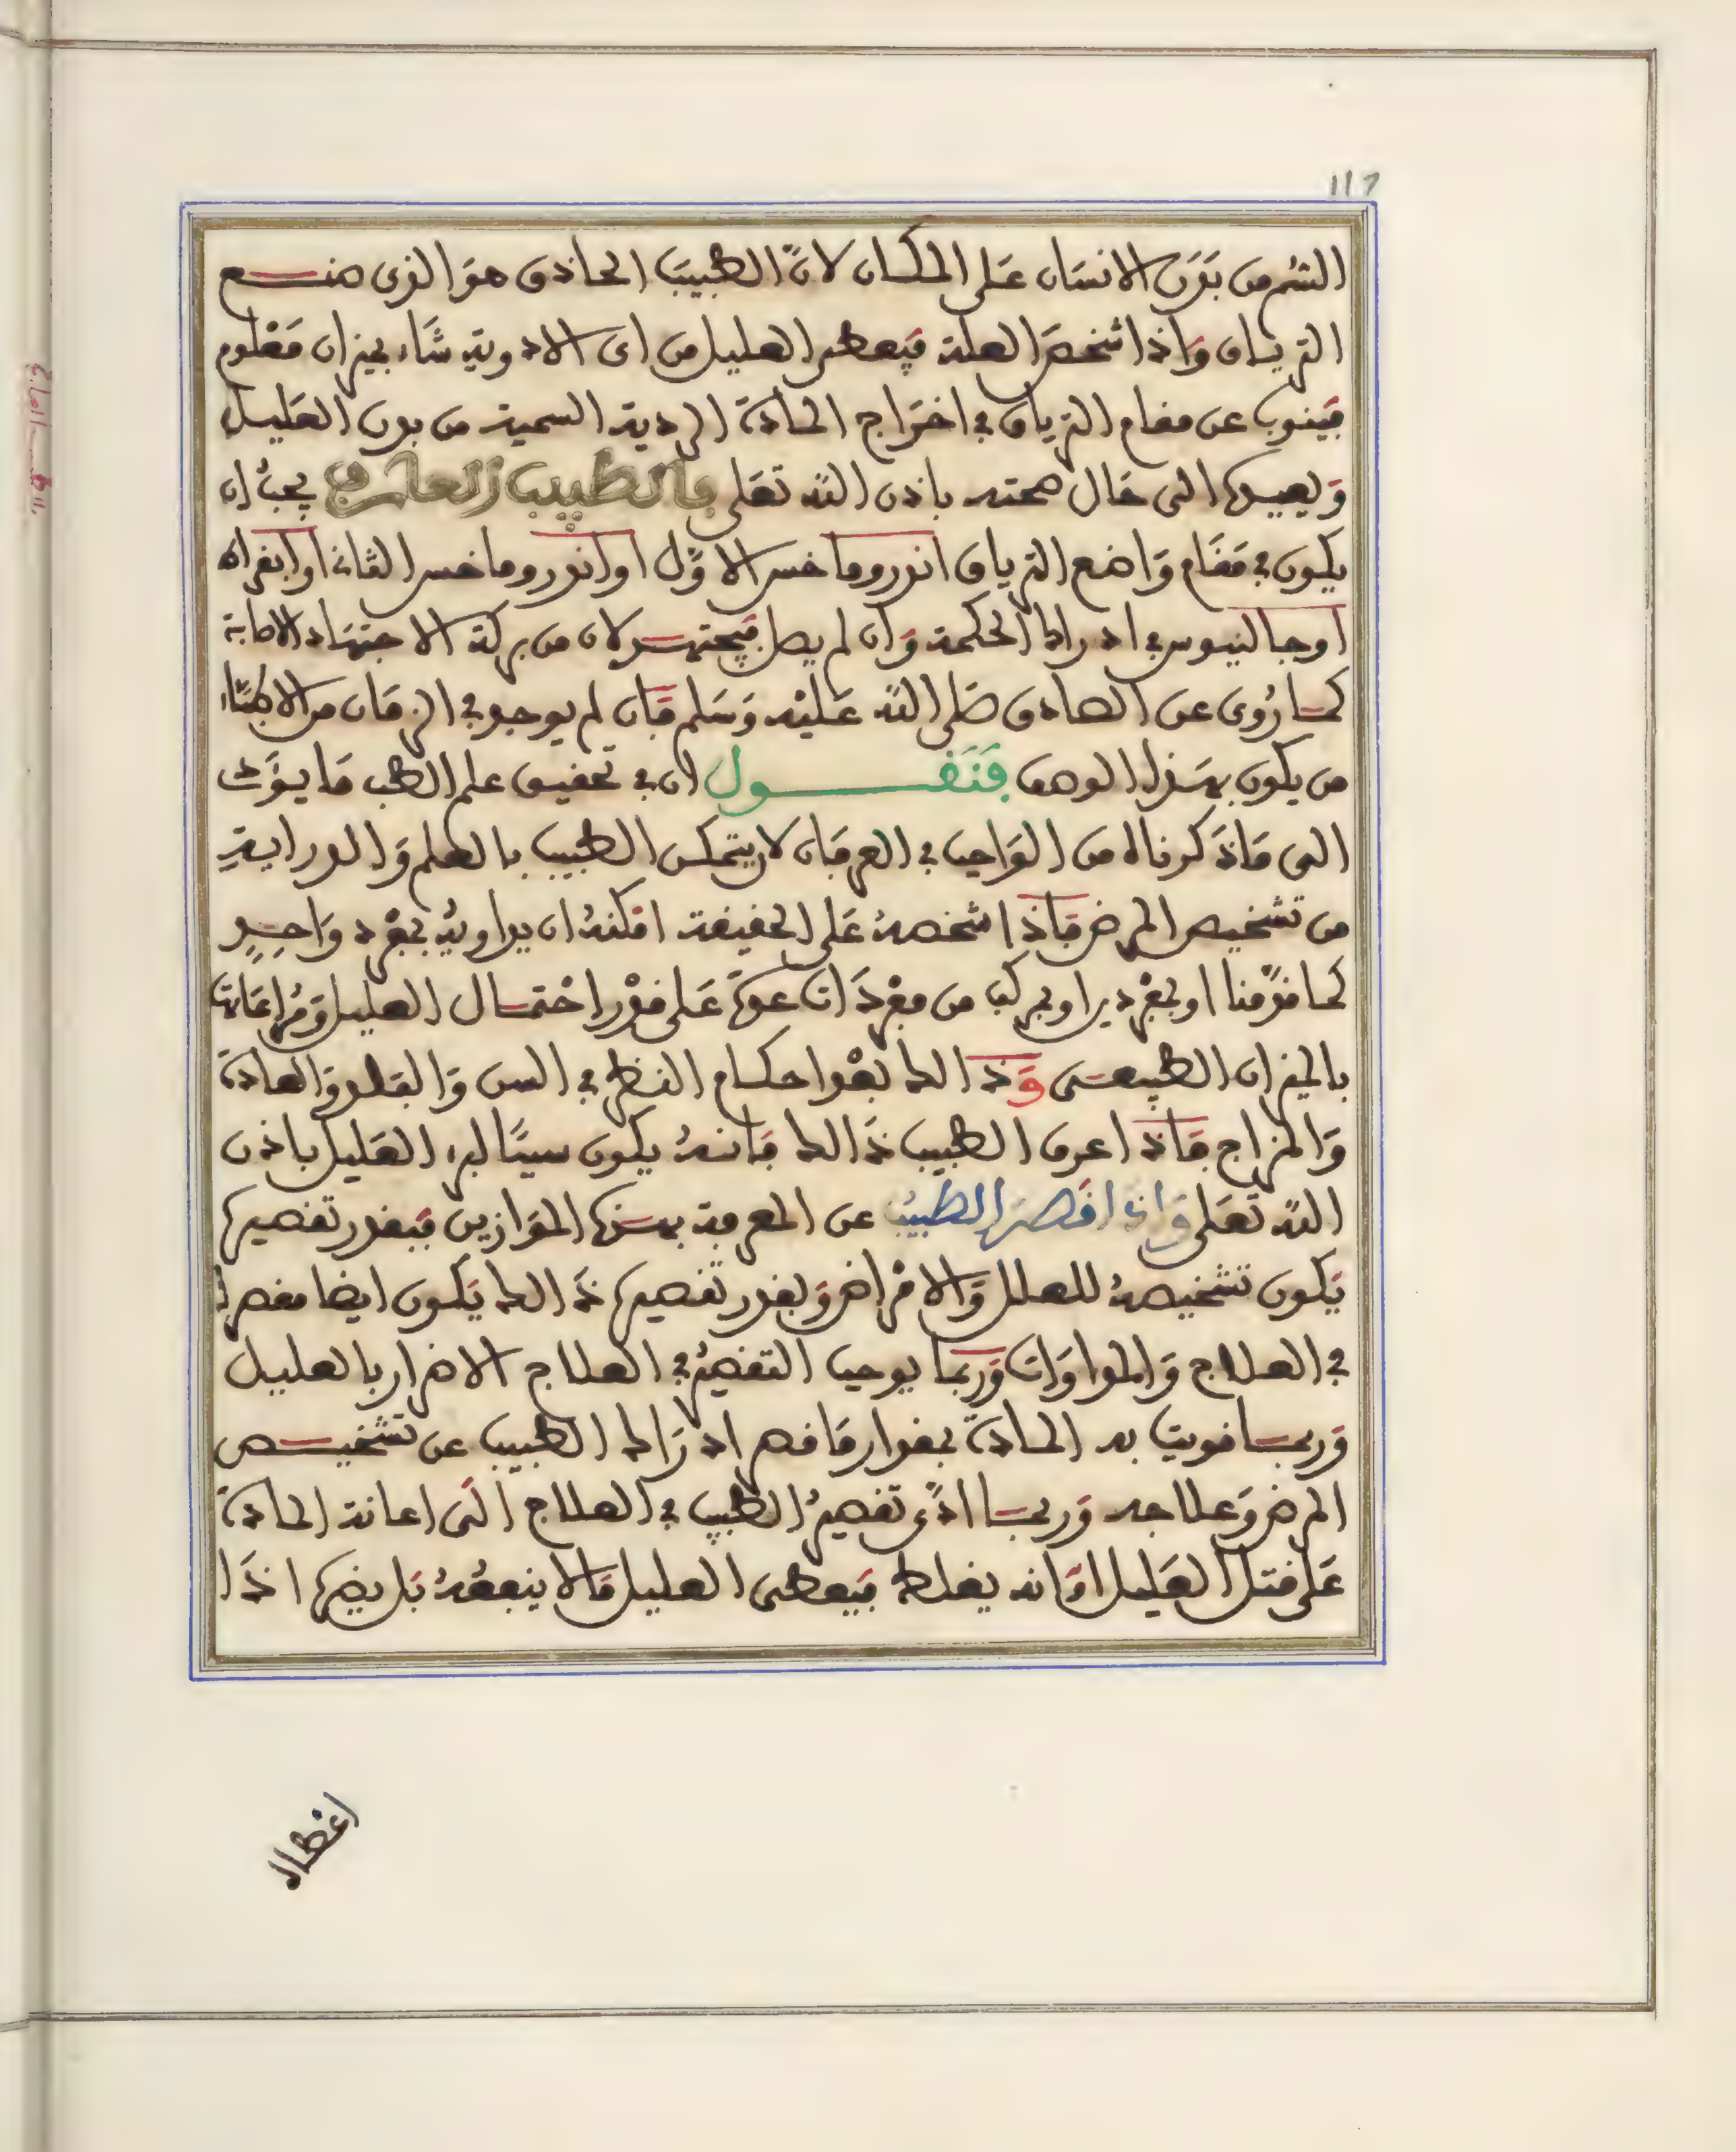 117
السُّم من بَدَن الانسان عَلى المكان لانَّ الطبيبَ الحاذق هوَ الذى صنع
الترياق وَاذا شخصَ العلة فيعطى العليل من اى الادوية شَاء بميزان مَعْلوم
فينوب عن مقام الترياق في اخرَاج المادة الردية السمية من بدن العَليل
وَيعيدها الى حَال صحته باذن الله تعَلى فالطبيب العارف يجبُ ان
يكون في مَقَام وَاضع الترياق اندروماخس الاوَّل او اندروماخس الثانى او ابقراط
او جالنيوس في ادراك الحكمة وَان لم يصل فيجتهد لان من بركة الاجتهَاد الاصابة
كما رُوى عن الصادق صَلى الله عَليْه وَسَلم فَان لم يوجد في الزمَان من الاطبَّاء
من يكون بهَذا الوصف فَنَقول ان في تحقيق علم الطب مَا يؤَدى
الى مَا ذَكرناه من الوَاجب في العرفَان لان يتمكن الطبيب بالعلم وَالدراية
من تشخيص المرض فَاذا شخصهُ عَلى الحقيقة امْكنهُ ان يداويهُ بمفْرد وَاحِدٍ
كما قدَّمنا او بمفْردين او بمركب من مفْردَات عدة عَلى قدْر احْتمال العليل وَمُراعَات
بالميزان الطبيعى وَذَالك بعْد احكام النظر في السن وَالبَلد وَالعادة
وَالمزاج فَاذا عرف الطبيب ذَالك فانهُ يكون سببًا لبرء العَليل باذن
الله تعَلى وَاذا قَصر الطبيبُ عن المعرفة بهذه الموَازين فبقدر تقصيره
يَكون تشخيصهُ للعلل وَالامْرَاض وَبقدر تقصيره ذَالك يَكون ايضا مقصرا
في العلاج وَالمداوَات وَربما يوجب التقصيرُ في العلاج الاضرار بالعليل
وَربما قويت به المادة بمقدار مَا قصر ادرَاك الطبيب عن تشخيص
المرض وَعلاجه وَربما ادَّى تقصيرُ الطبيب في العلاج الَى اعانة المادة
عَلى قتل العَليل اوَ انه يغلط فيَعطى العليل مَا لا ينفعُهُ بَل يضره اذَا
اعْطاه